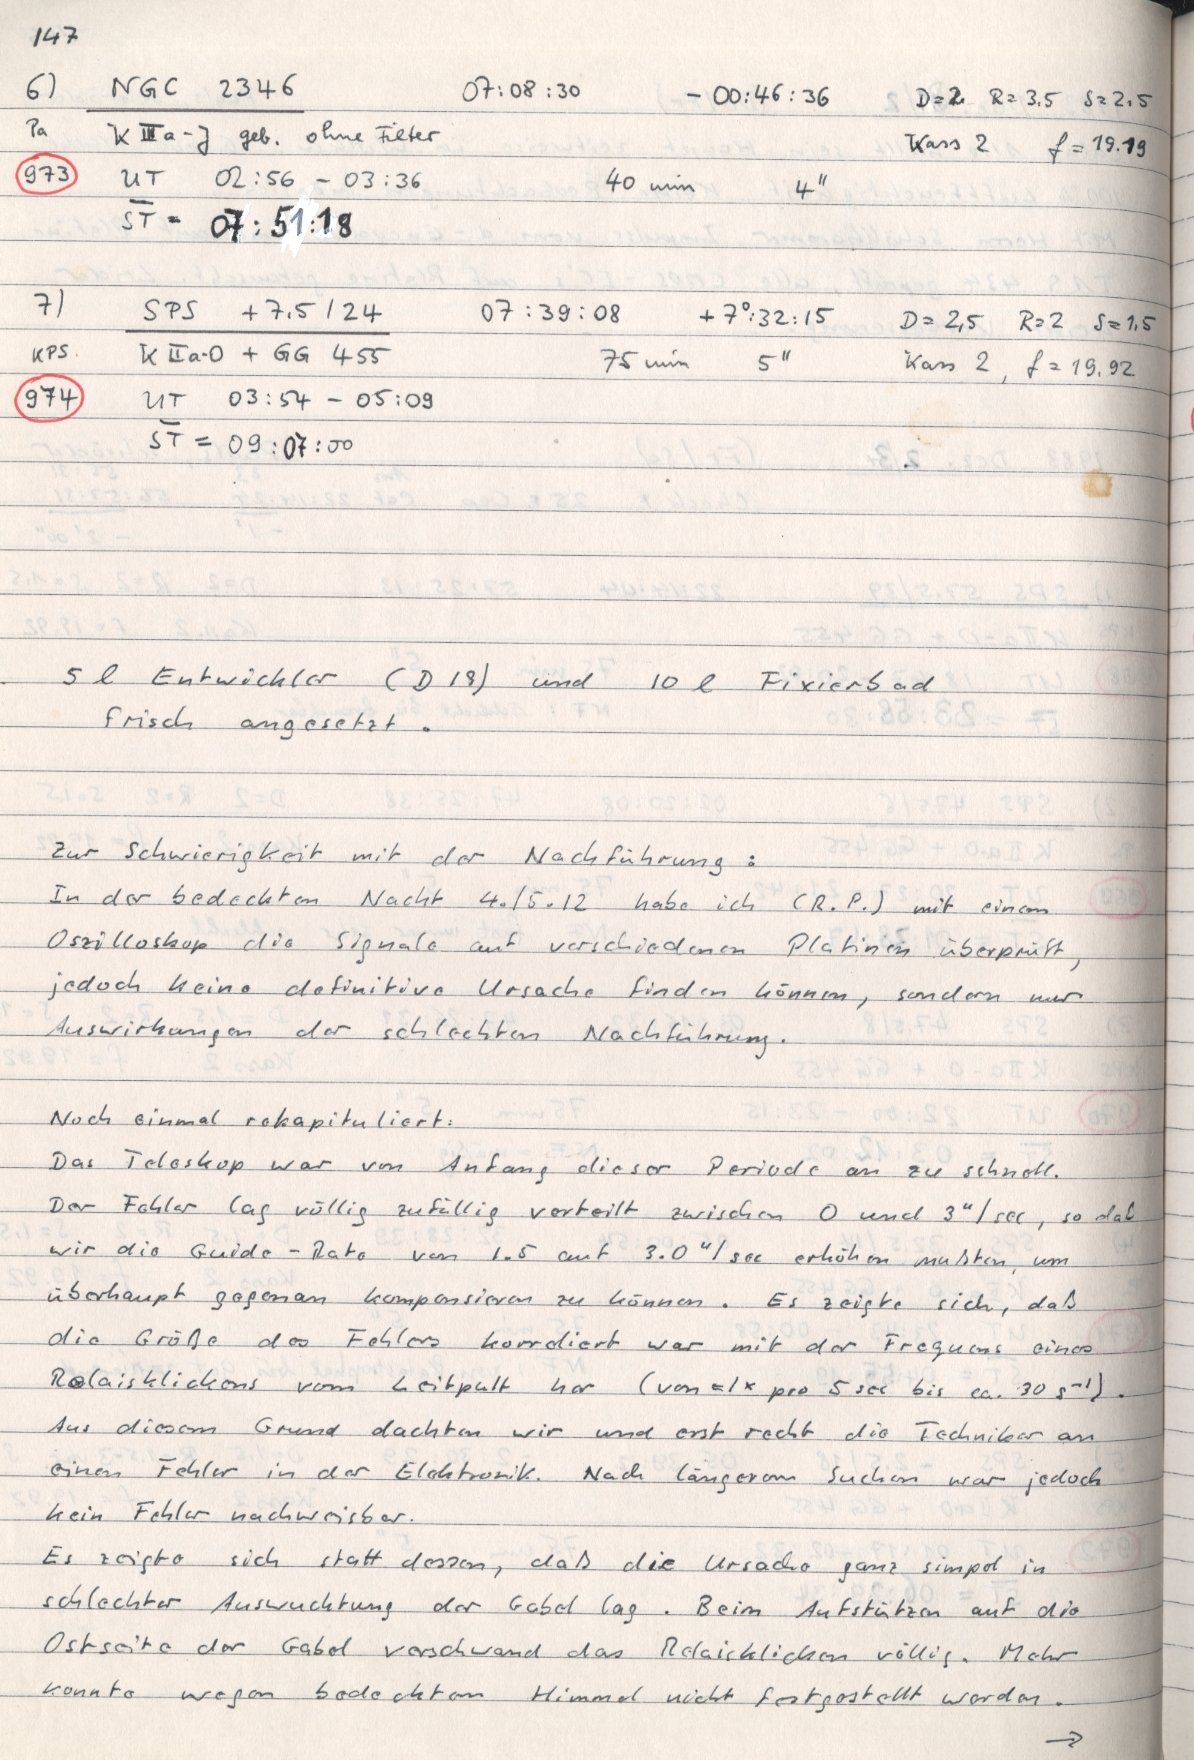 147
6) NGC 2346 07:08:30 - 00:46:36 D=2 R=3.5 S=2.5
Pa K IIIa-J geb. ohne Filter Kass 2 f=19.19
973 UT 02:56 - 03:36 40 min 4"
ST = 07:51:18
7) SPS +7.5/24 07:39:08 +7°:32:15 D=2,5 R=2 S=1,5
KPS K IIa-O + GG 455 75 min 5" Kass 2, f=19.92
974 UT 03:54 - 05:09
ST = 09:07:00
5 l Entwickler (D19) und 10 l Fixierbad
frisch angesetzt.
Zur Schwierigkeit mit der Nachführung:
In der bedeckten Nacht 4./5.12 habe ich (R.P.) mit einem
Oszilloskop die Signale auf verschiedenen Platinen überprüft,
jedoch keine definitive Ursache finden können, sondern nur
Auswirkungen der schlechten Nachführung.
Noch einmal rekapituliert:
Das Teleskop war von Anfang dieser Periode an zu schnell.
Der Fehler lag völlig zufällig verteilt zwischen 0 und 3"/sec, so daß
wir die Guide-Rate von 1.5 auf 3.0"/sec erhöhen mußten, um
überhaupt gegenan kompensieren zu können. Es zeigte sich, daß
die Größe des Fehlers korreliert war mit der Frequenz eines
Relaisklickens vom Leitpult her (von =1x pro 5 sec bis ca. 30 s⁻¹).
Aus diesem Grund dachten wir und erst recht die Techniker an
einen Fehler in der Elektronik. Nach längerem Suchen war jedoch
kein Fehler nachweisbar.
Es zeigte sich statt dessen, daß die Ursache ganz simpel in
schlechter Auswuchtung der Gabel lag. Beim Aufstützen auf die
Ostseite der Gabel verschwand das Relaisklicken völlig. Mehr
konnte wegen bedecktem Himmel nicht festgestellt werden.
→